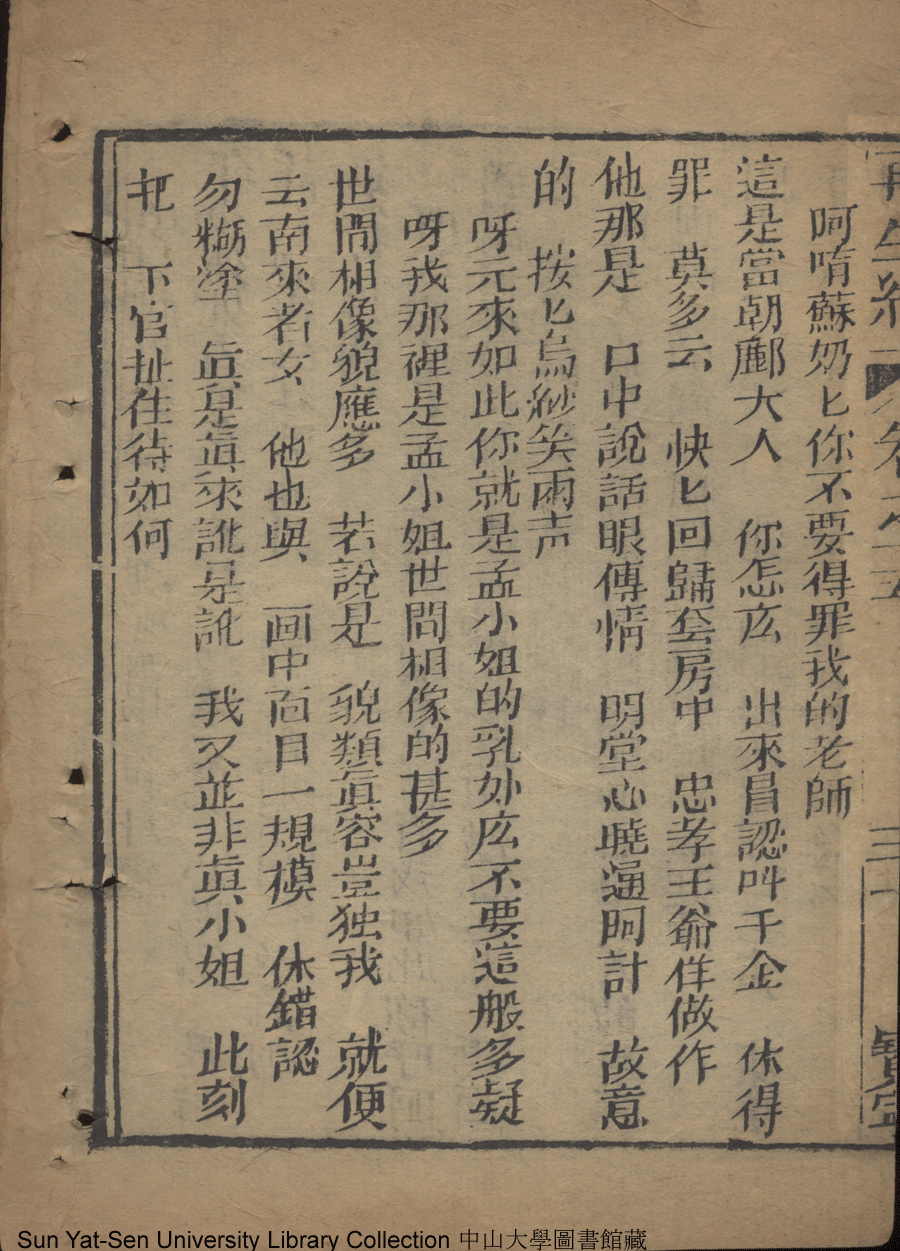 再生縁 卷之五 三十 寶
呵唷蘇奶匕你不要得罪我的老師
這是當朝酈大人 你怎広 出來冒認呌千金 休得
罪 莫多云 快匕回歸套房中 忠孝王爺佯做作
他那是 口中說話眼傳情 明堂心曉通呵計 故意
的 按匕烏紗笑兩声
呀元來如此你就是孟小姐的乳妳広不要這般多疑
呀我那裡是孟小姐世間相像的甚多
世間相像貌應多 若說是 貌類眞容豈独我 就便
云南來者女 他也與 画中面目一規模 休錯認
勿糊塗 眞是眞來訛是訛 我又並非眞小姐 此刻
把 下官扯住待如何
Sun Yat-Sen University Library Collection 中山大學圖書館藏